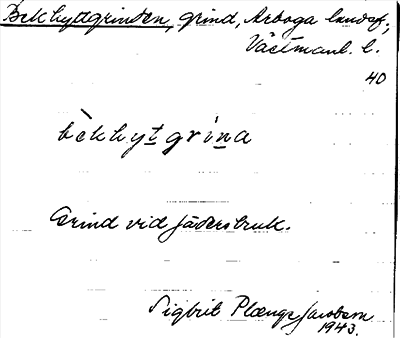 Bekhyttgrinden, grind, Arboga landsf.,
Västmanl. l.
40
bèkhytgrina
Grind vid Jäders bruk.
Sigbrit Plænge Jacobson
1943.